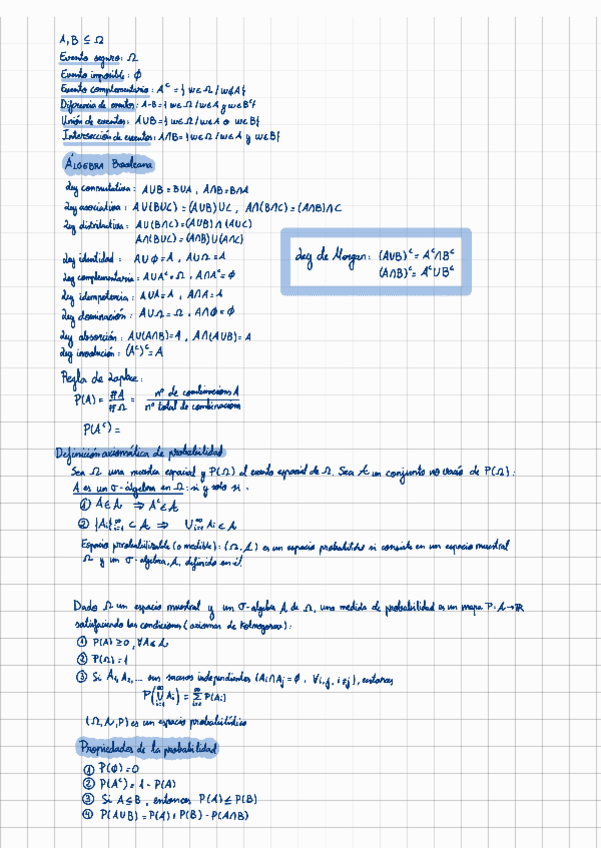 A, B ⊆ Ω
Evento seguro: Ω
Evento imposible: ∅
Evento complementario: Aᶜ = {w∈Ω / w∉A}
Diferencia de eventos: A-B = {w∈Ω / w∈A y w∈Bᶜ}
Unión de eventos: A∪B = {w∈Ω / w∈A o w∈B}
Intersección de eventos: A∩B = {w∈Ω / w∈A y w∈B}
ÁLGEBRA Booleana
Ley conmutativa: A∪B = B∪A, A∩B = B∩A
Ley asociativa: A∪(B∪C) = (A∪B)∪C, A∩(B∩C) = (A∩B)∩C
Ley distributiva: A∪(B∩C) = (A∪B)∩(A∪C)
A∩(B∪C) = (A∩B)∪(A∩C)
Ley identidad: A∪∅ = A, A∩Ω = A
Ley complementaria: A∪Aᶜ = Ω, A∩Aᶜ = ∅
Ley idempotencia: A∪A = A, A∩A = A
Ley dominación: A∪Ω = Ω, A∩∅ = ∅
Ley absorción: A∪(A∩B) = A, A∩(A∪B) = A
Ley involución: (Aᶜ)ᶜ = A
Ley de Morgan: (A∪B)ᶜ = Aᶜ∩Bᶜ
(A∩B)ᶜ = Aᶜ∪Bᶜ
Regla de Laplace:
P(A) = #A / #Ω = nº de combinacions A / nº total de combinacions
P(Aᶜ) =
Definición axiomática de probabilidad
Sea Ω una muestra espacial y P(Ω) el evento espacial de Ω. Sea A un conjunto no vacío de P(Ω):
A es un σ-álgebra en Ω: si y solo si.
① A∈A ⇒ Aᶜ∈A
② {Ai}ᵢ₌₁^∞ ⊂ A ⇒ ∪ᵢ₌₁^∞ Ai ∈ A
Espacio probabilizable (o medible): (Ω, A) es un espacio probabilidad si consiste en un espacio muestral
Ω y un σ-algebra, A, definido en él.
Dado Ω un espacio muestral y un σ-algebra A de Ω, una medida de probabilidad es un mapa P: A→ℝ
satisfaciendo las condiciones (axiomas de Kolmogorov):
① P(A) ≥ 0, ∀A∈A
② P(Ω) = 1
③ Si A₁, A₂, ... son sucesos independientes (Ai∩Aj = ∅, ∀i,j, i≠j), entonces
P(∪ᵢ₌₁^∞ Ai) = Σᵢ₌₁^∞ P(Ai)
(Ω, A, P) es un espacio probabilístico
Propiedades de la probabilidad
① P(∅) = 0
② P(Aᶜ) = 1 - P(A)
③ Si A⊆B, entonces P(A) ≤ P(B)
④ P(A∪B) = P(A) + P(B) - P(A∩B)